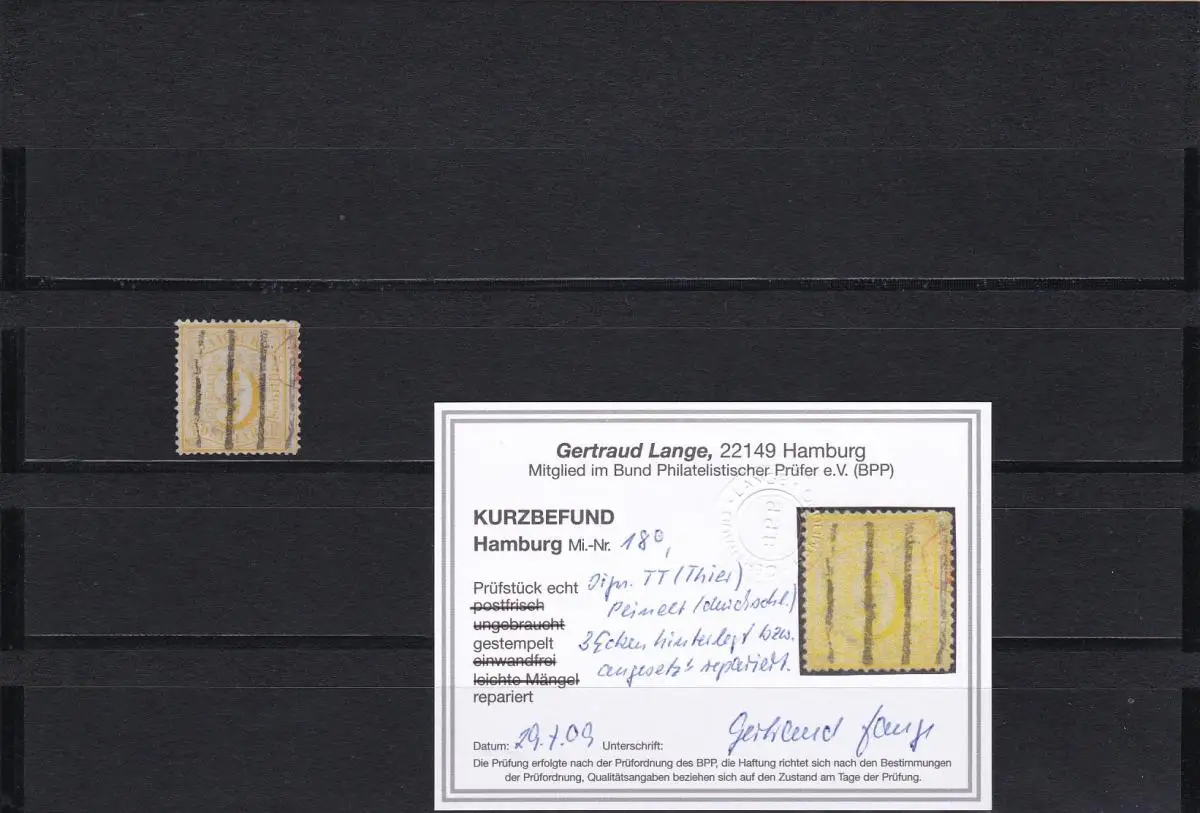 HAMBURG
9
POSTMARKE
Gertraud Lange, 22149 Hamburg
Mitglied im Bund Philatelistischer Prüfer e.V. (BPP)
KURZBEFUND
Hamburg Mi.-Nr. 18 o,
Prüfstück echt Sign. TT (Thier)
postfrisch Peinelt (durchschl.)
ungebraucht
gestempelt 3 Ecken hinterlegt bzw.
einwandfrei angesetzt repariert.
leichte Mängel
repariert
Datum: 29.7.09 Unterschrift: Gertraud Lange
Die Prüfung erfolgte nach der Prüfordnung des BPP, die Haftung richtet sich nach den Bestimmungen
der Prüfordnung, Qualitätsangaben beziehen sich auf den Zustand am Tage der Prüfung.
LANGE
BPP
9